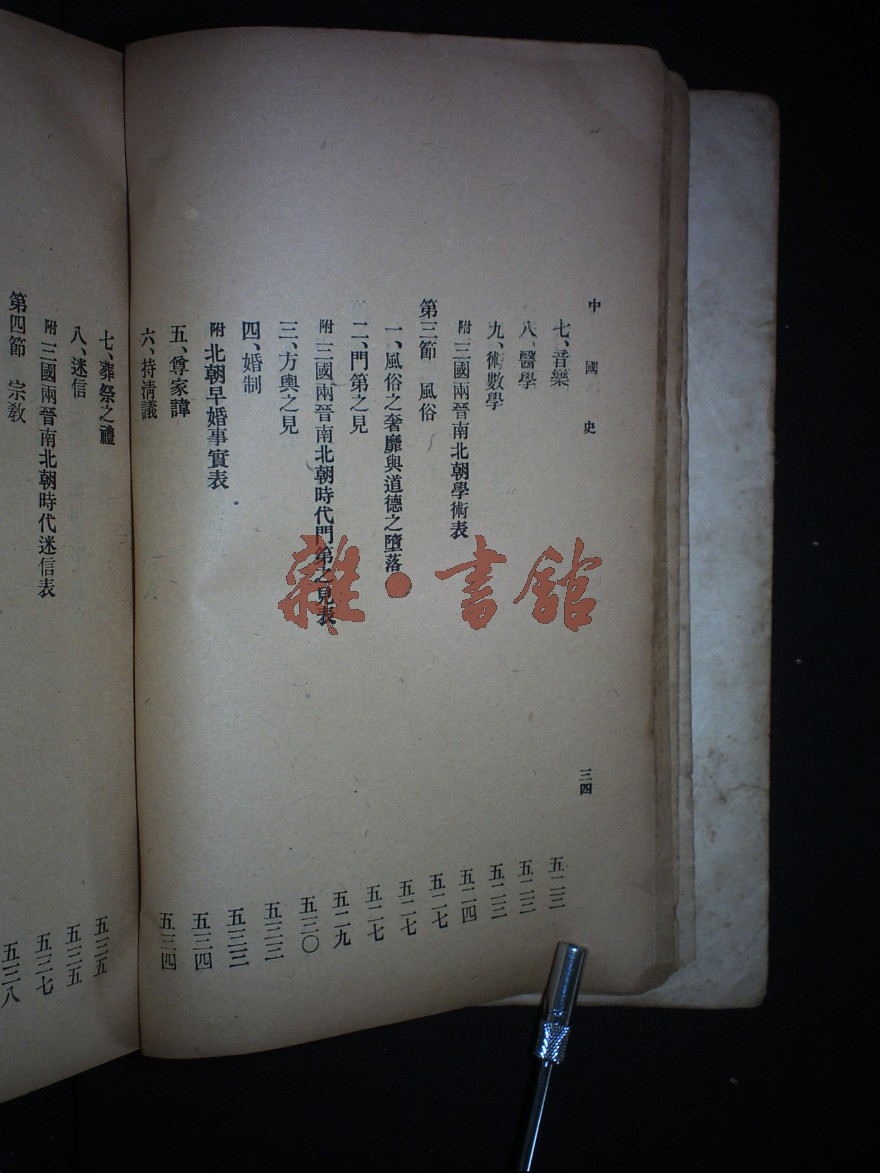 中國史
三四
七、音樂 五二三
八、醫學 五二三
九、術數學 五二三
附 三國兩晉南北朝學術表 五二四
第三節 風俗 五二七
一、風俗之奢靡與道德之墮落 五二七
二、門第之見 五二七
附 三國兩晉南北朝時代門第之見表 五二九
三、方輿之見 五三〇
四、婚制 五三三
附 北朝早婚事實表 五三三
五、尊家諱 五三四
六、持清議 五三四
七、葬祭之禮 五三五
八、迷信 五三五
附 三國兩晉南北朝時代迷信表 五三七
第四節 宗教 五三八
雜·書館